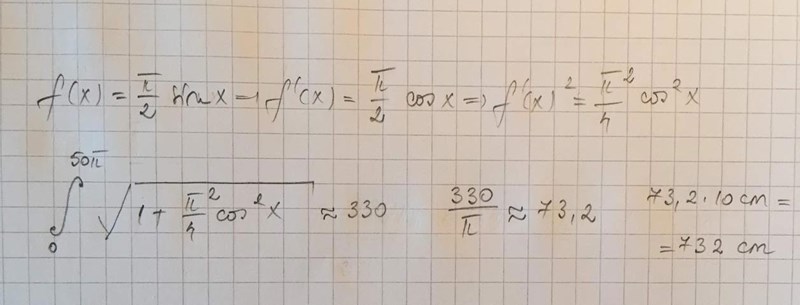 f(x) = π/2 sin x ⇒ f'(x) = π/2 cos x ⇒ f'(x)² = π²/4 cos² x
∫₀^50π √(1 + π²/4 cos² x) ≈ 330    330/π ≈ 73,2    73,2 · 10 cm =
= 732 cm